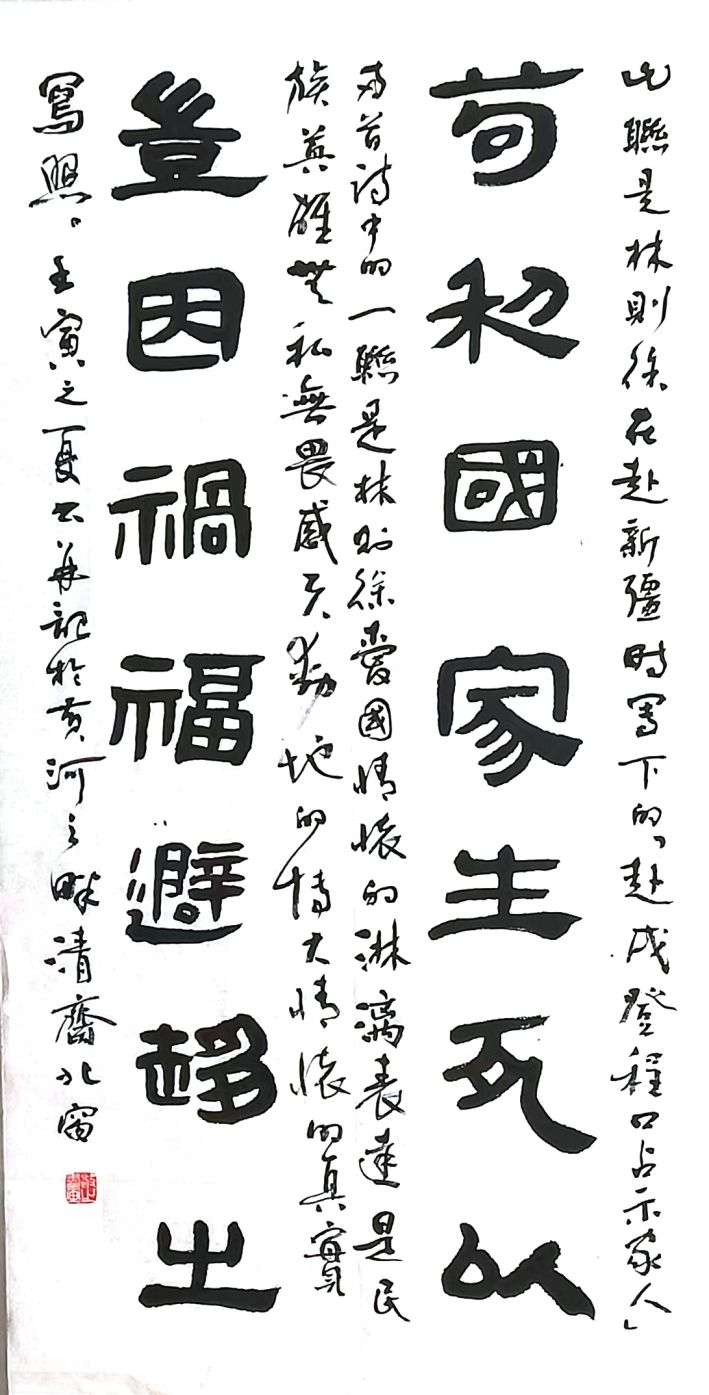 此聯是林則徐在赴新疆時寫下的「赴戍登程口占示家人」
苟利國家生死以
兩首詩中的一聯是林則徐愛國情懷的淋漓表達是民
族英雄無私無畏感天動地的博大情懷的真實
豈因禍福避趍之
寫照。壬寅之夏并記於黃河之畔清齋北窗